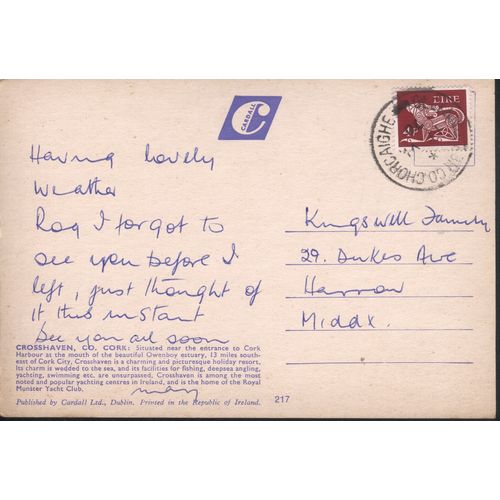 CARDALL
C
ÉIRE
CO. CHORCAIGHE
Having lovely
weather
Ray I forgot to
see you before I
left, just thought of
it this instant
see you all soon
Mary
Kingswell Family
29. Dukes Ave
Harrow
Middx.
CROSSHAVEN, CO. CORK: Situated near the entrance to Cork
Harbour at the mouth of the beautiful Owenboy estuary, 13 miles south-
east of Cork City, Crosshaven is a charming and picturesque holiday resort,
its charm is wedded to the sea, and its facilities for fishing, deepsea angling,
yachting, swimming etc. are unsurpassed. Crosshaven is among the most
noted and popular yachting centres in Ireland, and is the home of the Royal
Munster Yacht Club.
Published by Cardall Ltd., Dublin. Printed in the Republic of Ireland.
217